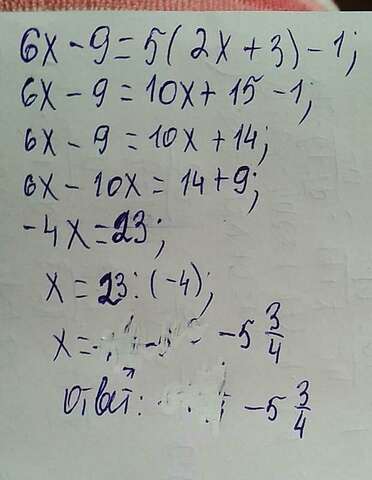 6x - 9 = 5(2x + 3) - 1;
6x - 9 = 10x + 15 - 1;
6x - 9 = 10x + 14;
6x - 10x = 14 + 9;
-4x = 23;
x = 23 : (-4);
x = -5 3/4
Ответ: -5 3/4